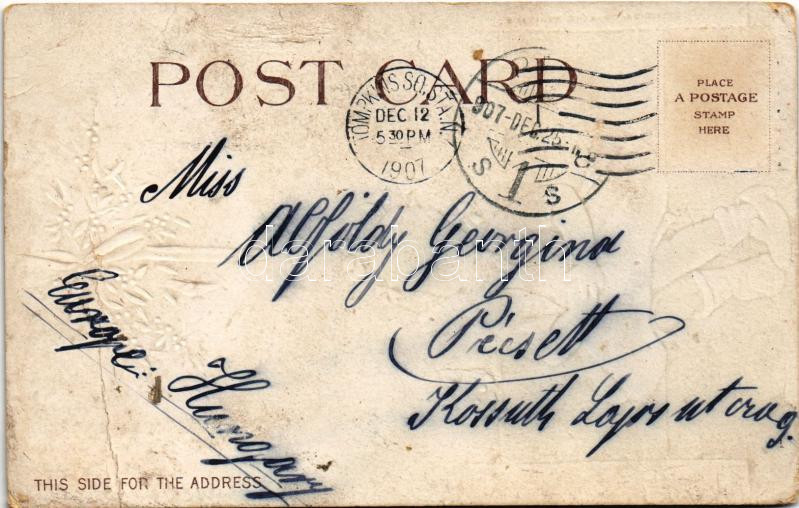 POST CARD
PLACE
A POSTAGE
STAMP
HERE
TOMPKINS SQ. STA. N
DEC 12
5 30 PM
1907
907-DEC 25
1
S S
Miss
Alföldy Georgina
Pécsett
Kossuth Lajos utca
Europe
Hungary
THIS SIDE FOR THE ADDRESS
darabanth